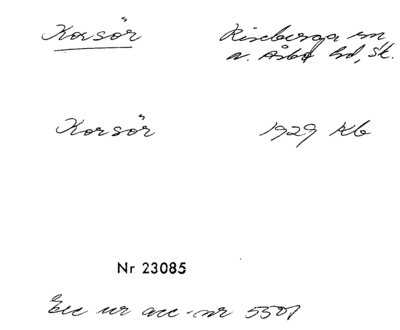 Korsör
Riseberga sn
N. Åsbo hd, Sk.
Korsör
1929 Kb
Nr 23085
Exc ur acc. nr 5501